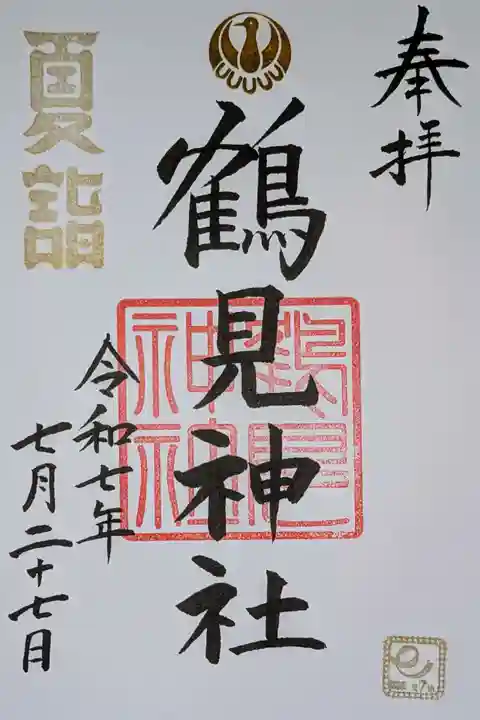 奉拝
鶴見神社
鶴見神社
令和七年
七月二十七日
夏詣